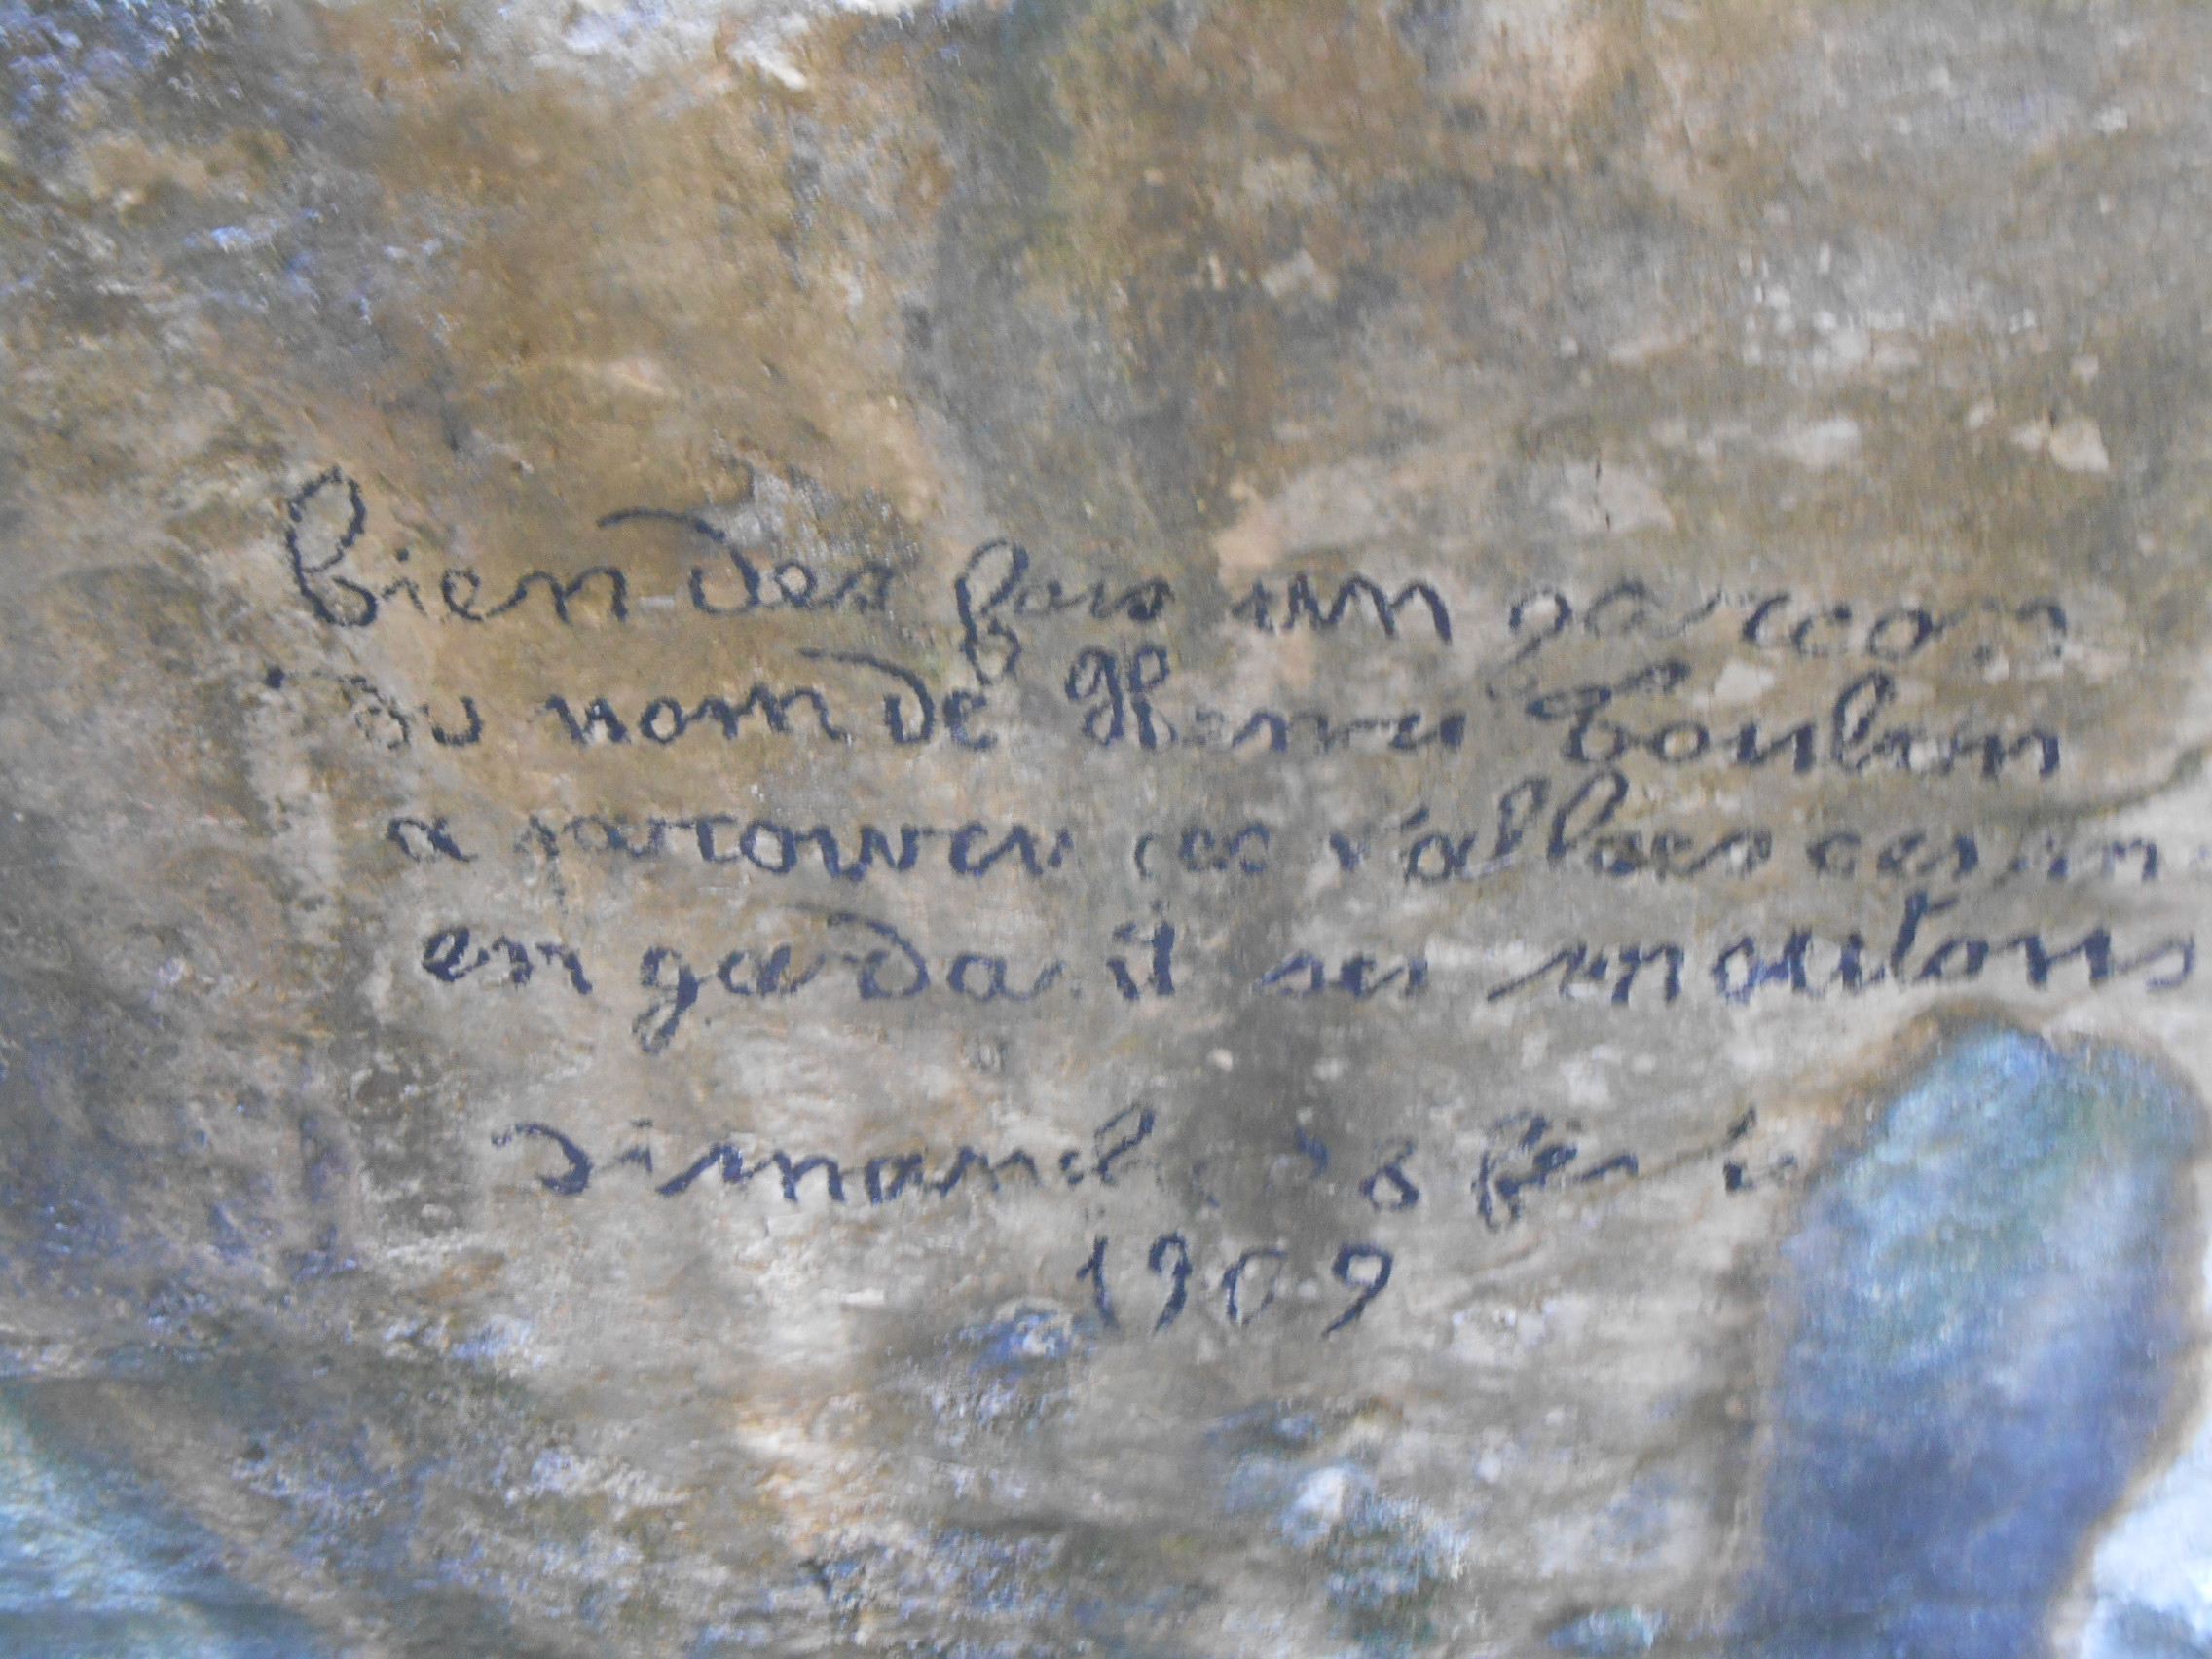 bien des fois un garcon
du nom de Henri Toulon
a parcouru ces vallees ces
en gardant ses moutons
dimanche fev
1909